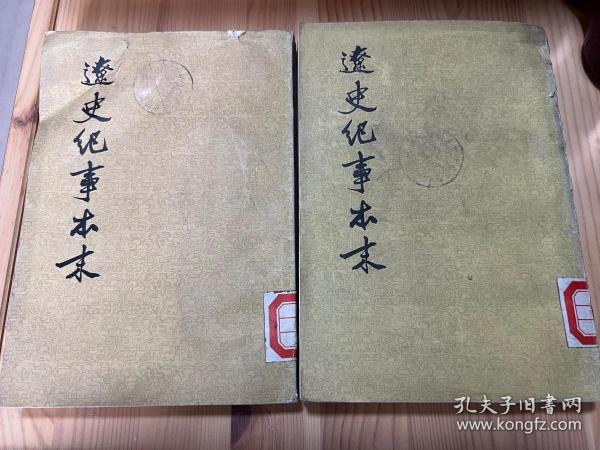 遼史紀事本末
遼史紀事本末
孔夫子旧書网
www.kongfz.com